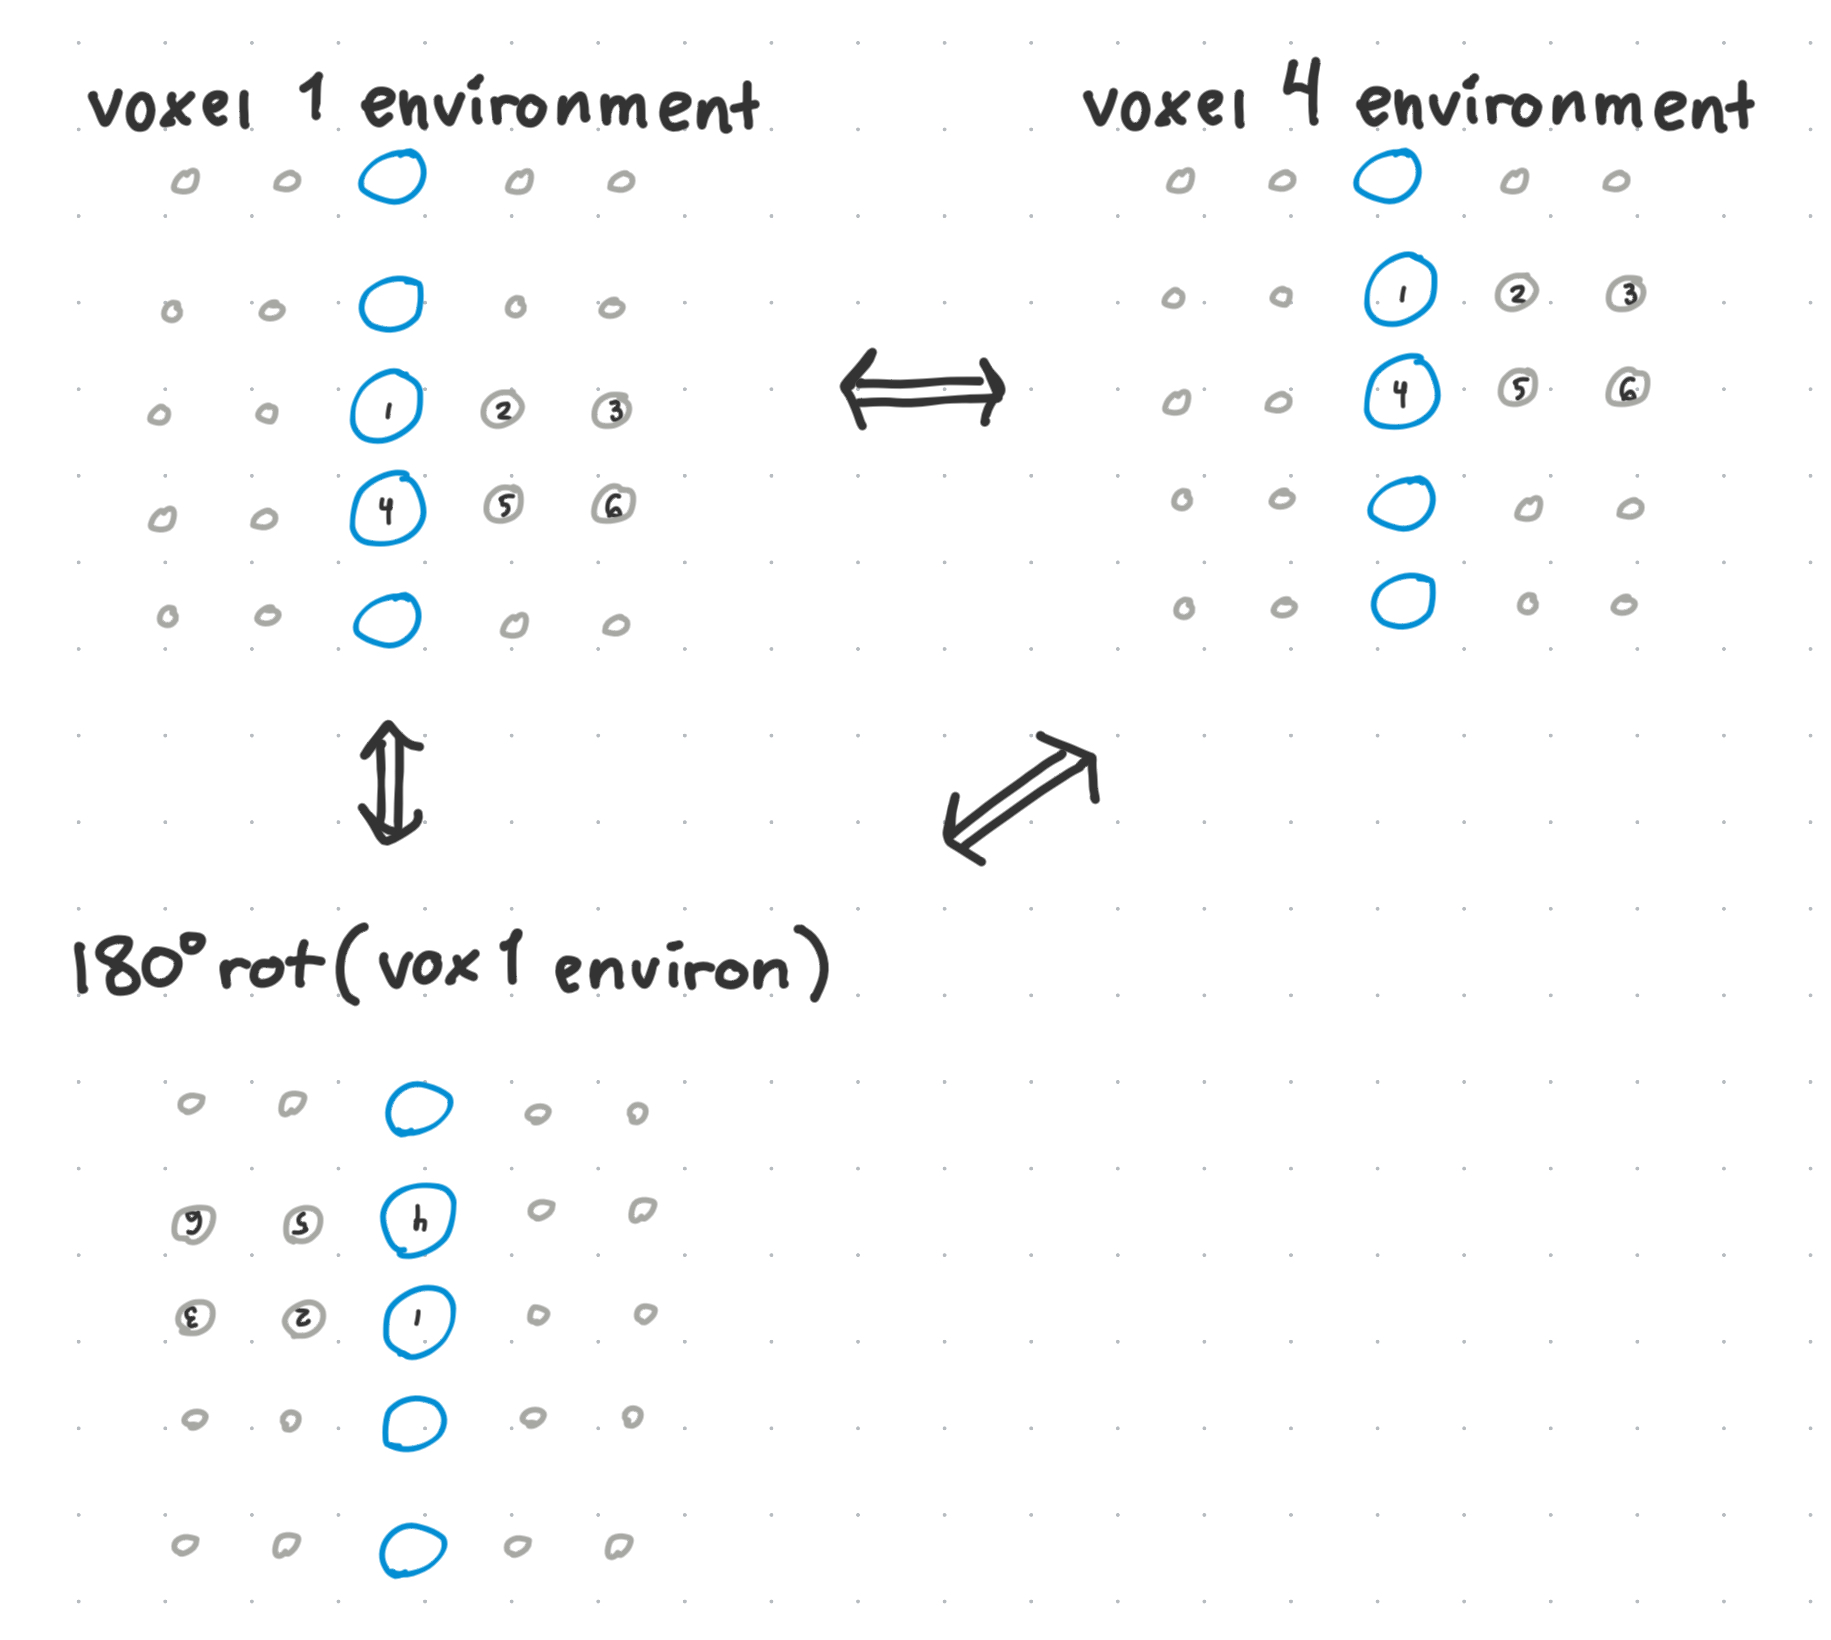 voxel 1 environment
1 2 3
4 5 6
voxel 4 environment
1 2 3
4 5 6
180° rot (vox 1 environ)
6 5 4
3 2 1